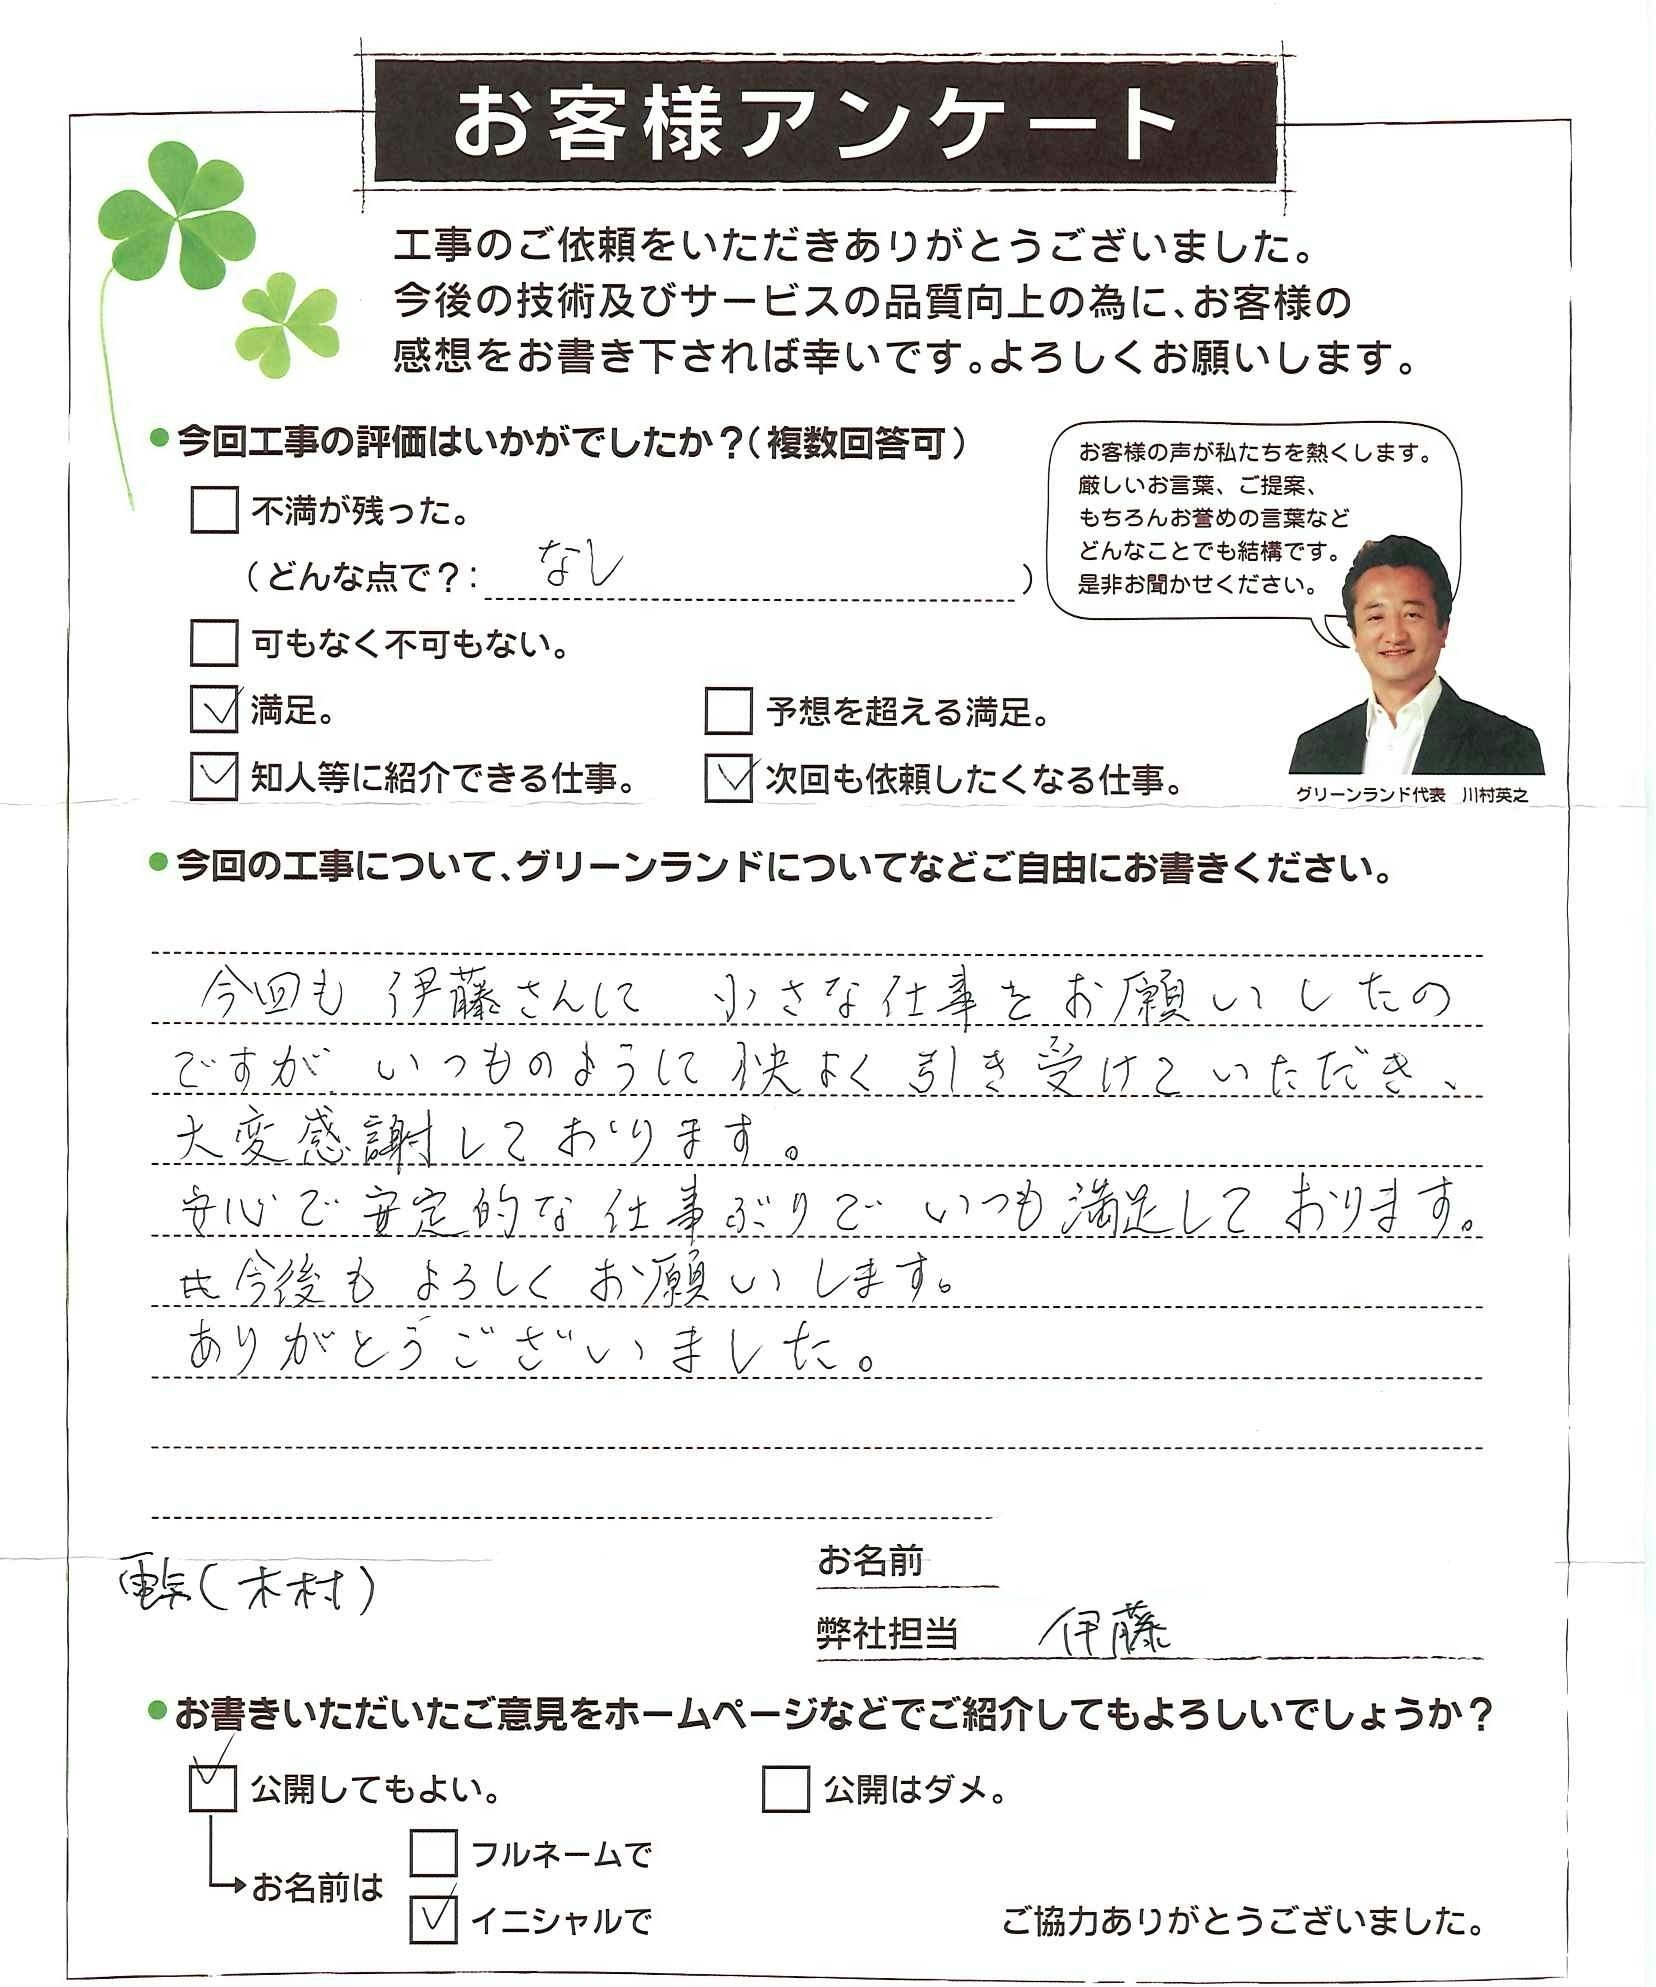 お客様アンケート
工事のご依頼をいただきありがとうございました。
今後の技術及びサービスの品質向上の為に、お客様の
感想をお書き下されば幸いです。よろしくお願いします。
●今回工事の評価はいかがでしたか？(複数回答可)
不満が残った。
(どんな点で？: なし )
可もなく不可もない。
満足。
予想を超える満足。
知人等に紹介できる仕事。
次回も依頼したくなる仕事。
お客様の声が私たちを熱くします。
厳しいお言葉、ご提案、
もちろんお誉めの言葉など
どんなことでも結構です。
是非お聞かせください。
グリーンランド代表 川村英之
●今回の工事について、グリーンランドについてなどご自由にお書きください。
今回も 伊藤さんに 小さな仕事をお願いしたの
ですが、いつものように快よく引き受けていただき、
大変感謝しております。
安心で安定的な仕事ぶりで いつも満足しております。
今後も よろしく お願いします。
ありがとうございました。
電気(木村)
お名前
弊社担当 伊藤
●お書きいただいたご意見をホームページなどでご紹介してもよろしいでしょうか？
公開してもよい。
公開はダメ。
お名前は
フルネームで
イニシャルで
ご協力ありがとうございました。